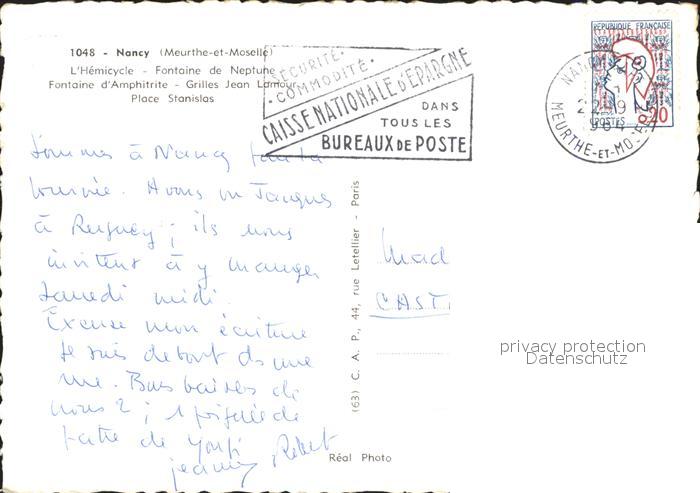 1048 - Nancy (Meurthe-et-Moselle)
L'Hémicycle - Fontaine de Neptune
Fontaine d'Amphitrite - Grilles Jean Lamour
Place Stanislas
SÉCURITÉ.
COMMODITÉ.
CAISSE NATIONALE d'ÉPARGNE
DANS
TOUS LES
BUREAUX DE POSTE
REPUBLIQUE FRANÇAISE
POSTES
0,20
NANCY
22-9
1964
MEURTHE-ET-MOSELLE
Sommes à Nancy
tournée. Avons vu Jacques
à ; ils nous
invitent à y manger
samedi midi.
Excuse mon écriture
je suis debout ds une
rue. Bons baisers de
nous 2 ; 1 poignée de
patte de Youpi
jeanny Robert
(63) C. A. P., 44, rue Letellier - Paris
Mad
CAST
Réal Photo
privacy protection
Datenschutz